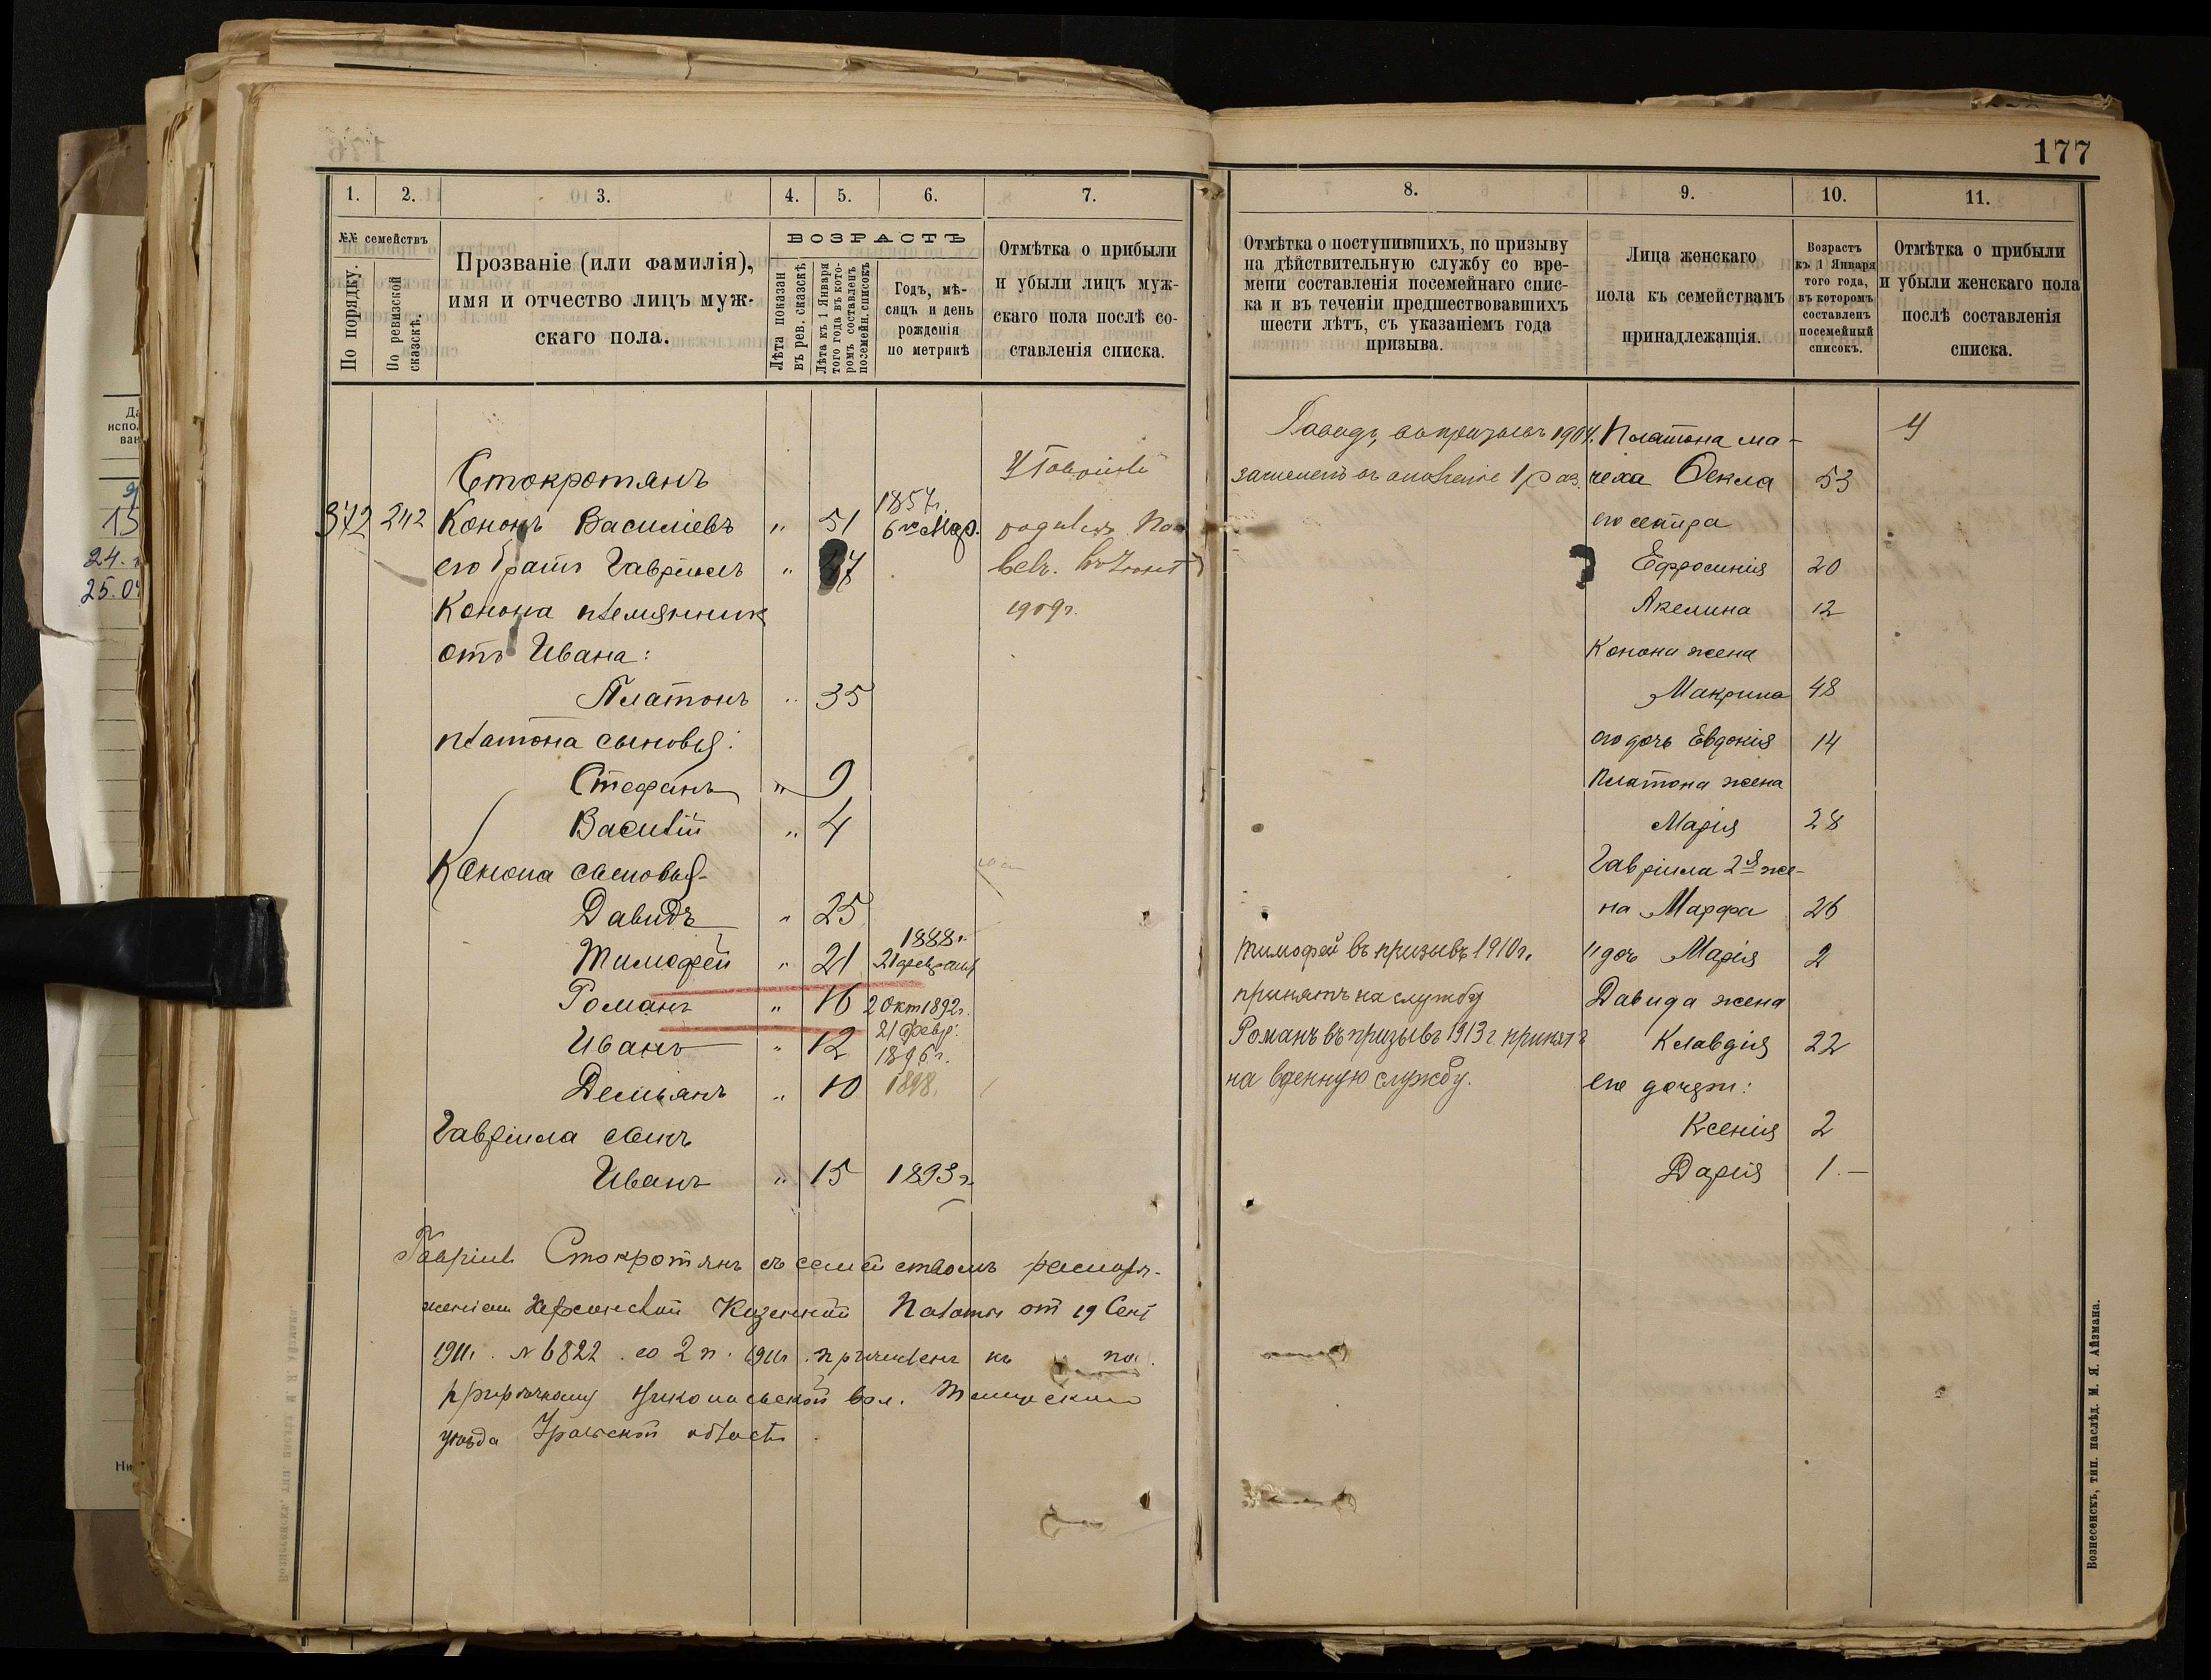 177
1. 2. 3. 4. 5. 6. 7.
№№ семействъ
По порядку.
По ревизской сказскѣ.
Прозваніе (или фамилія),
имя и отчество лицъ муж-
скаго пола.
ВОЗРАСТЪ
Лѣта показан въ рев. сказскѣ
Лѣта къ 1 Января того года въ кото-ромъ составленъ посемейн. списокъ
Годъ, мѣ-
сяцъ и день
рожденія
по метрикѣ
Отмѣтка о прибыли
и убыли лицъ муж-
скаго пола послѣ со-
ставленія списка.
Стокротянъ
372 242 Кононъ Василіевъ " 51 1857г. 6го Мар.
его братъ Гавріилъ " 7
Конона племянник
отъ Ивана:
Платонъ " 35
платона сыновья:
Стефанъ " 9
Василій " 4
Конона сыновья
Давидъ " 25
Тимофей " 21 1888г. 21 февраля
Романъ " 16 2 Окт 1892г.
Иванъ " 12 21 февр. 1896г.
Демьянъ " 10 1898.
Гавріила сынъ
Иванъ " 15 1893г.
У Гавріила
родился
1909г.
Гавріилъ Стокротянъ съ семействомъ распоря-
женіем Херсонской Казенной Палаты от 19 Сент
1911г. № 6822 со 2 п. 1911г. причислен къ
вол. Темирскаго
уѣзда Уральской области
8. 9. 10. 11.
Отмѣтка о поступившихъ, по призыву
на дѣйствительную службу со вре-
мени составленія посемейнаго спис-
ка и въ теченіи предшествовавшихъ
шести лѣтъ, съ указаніемъ года
призыва.
Лица женскаго
пола къ семействамъ
принадлежащія.
Возрастъ
къ 1 Января
того года,
въ которомъ
составленъ
посемейный
списокъ.
Отмѣтка о прибыли
и убыли женскаго пола
послѣ составленія
списка.
Давидъ, въ призывъ 1904г. Платона ма-
зачислен въ ополченіе 1 раз. чеха Фекла 53
его сестра
Ефросинія 20
Акелина 12
Конона жена
Макрина 48
его дочь Евдокія 14
Платона жена
Марія 28
Гавріила 2я же-
на Марфа 26
Тимофей въ призывъ 1910г. " дочь Марія 2
принятъ на службу Давида жена
Романъ въ призывъ 1913г. принятъ Клавдія 22
на военную службу. его дочери:
Ксенія 2
Дарія 1.—
Вознесенскъ, тип. наслѣд. М. Я. Айзмана.